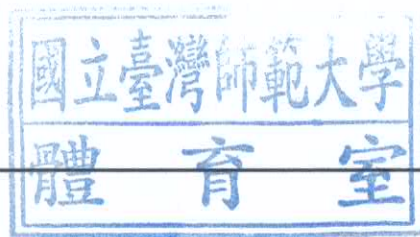 國立臺灣師範大學
體育室